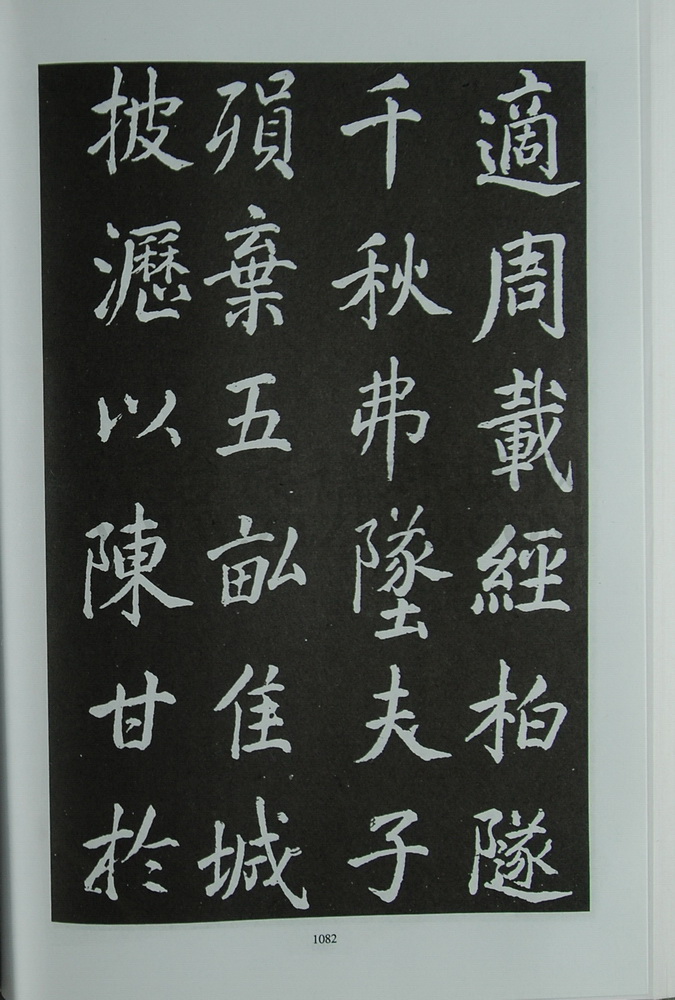 適周載經柏隧
千秋弗墜夫子
殞棄五畝佳城
披瀝以陳甘於
1082